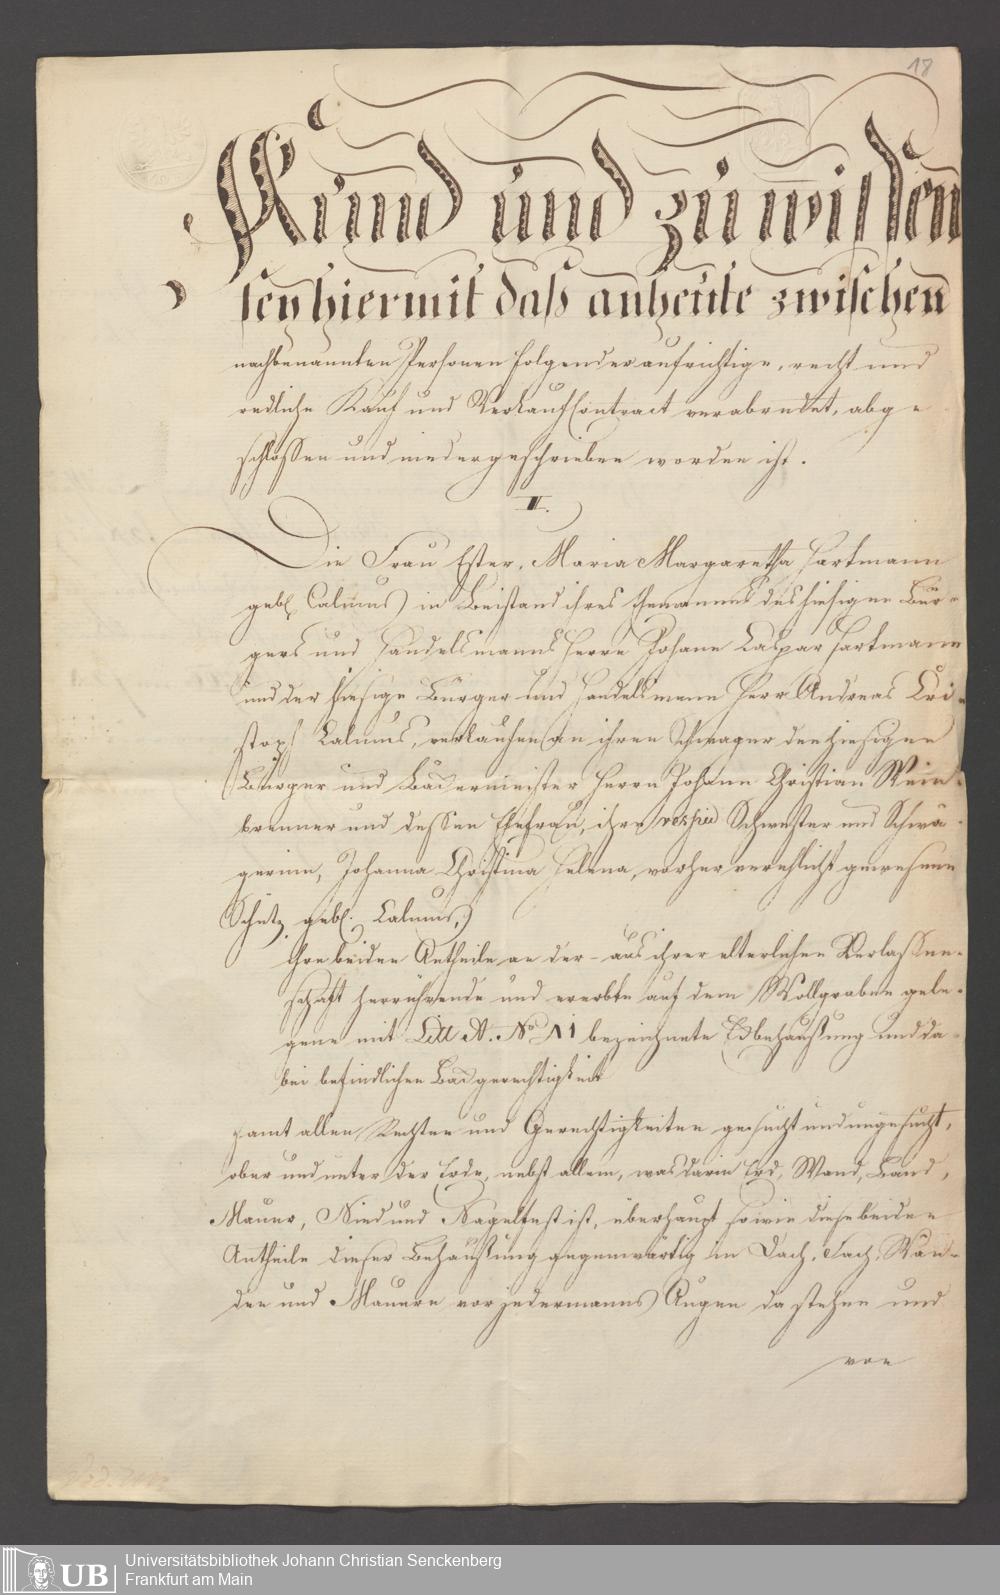 18
Kund und zu wissen
sey hiermit daß anheute zwischen
nachbenannten Personen folgender aufrichtige, recht und
redliche Kauf und Verkauf Contract verabredet, abge
schlossen und niedergeschrieben worden ist.
Die Frau Ester, Maria Margaretha Hartmann
gebl. Calmus in Beistand ihres Ehemannes des hiesigen Bür-
gers und Handelsmanns Herrn Johann Caspar Hartmann
und der hiesige Bürger und Handelsmann Herr Andreas Cri-
stoph Calmus, verkaufen an ihren Schwager den hiesigen
Bürger und Bäckermeister Herrn Johann Christian Wein-
brenner und dessen Ehefrau, ihre respve Schwester und Schwä-
gerinn, Johanna Christina Helena, vorher verehlicht gewesene
Schütz gebl. Calmus,
Ihre beiden Antheile an der - aus ihrer elterlichen Verlassen-
schaft herrührende und ererbte auf dem Wollgraben gele-
gene mit Litt A. No 11 bezeichnete Eckbehaußung und da-
bei befindlichen Backgerechtigkeit
samt allen Rechten und Gerechtigkeiten gesucht und ungesucht,
ober und unter der Erde, nebst allem, was darin Erd, Wand, Band,
Mauer, Nied und Nagelfest ist, überhaupt so wie diese beiden
Antheile dieser Behaußung gegenwärtig in Dach, Fach, Wän-
den und Mauern vor jedermanns Augen da stehen und
von
UB
Universitätsbibliothek Johann Christian Senckenberg
Frankfurt am Main